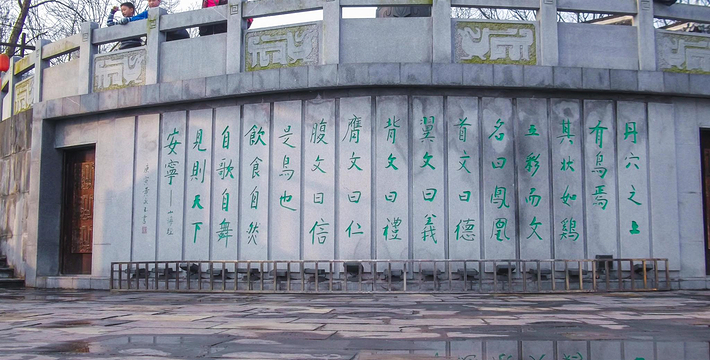 丹穴之上
有鳥焉
其狀如鷄
五彩而文
名曰鳳凰
首文曰德
翼文曰義
背文曰禮
膺文曰仁
腹文曰信
是鳥也
飲食自然
自歌自舞
見則天下
安寧——山海經